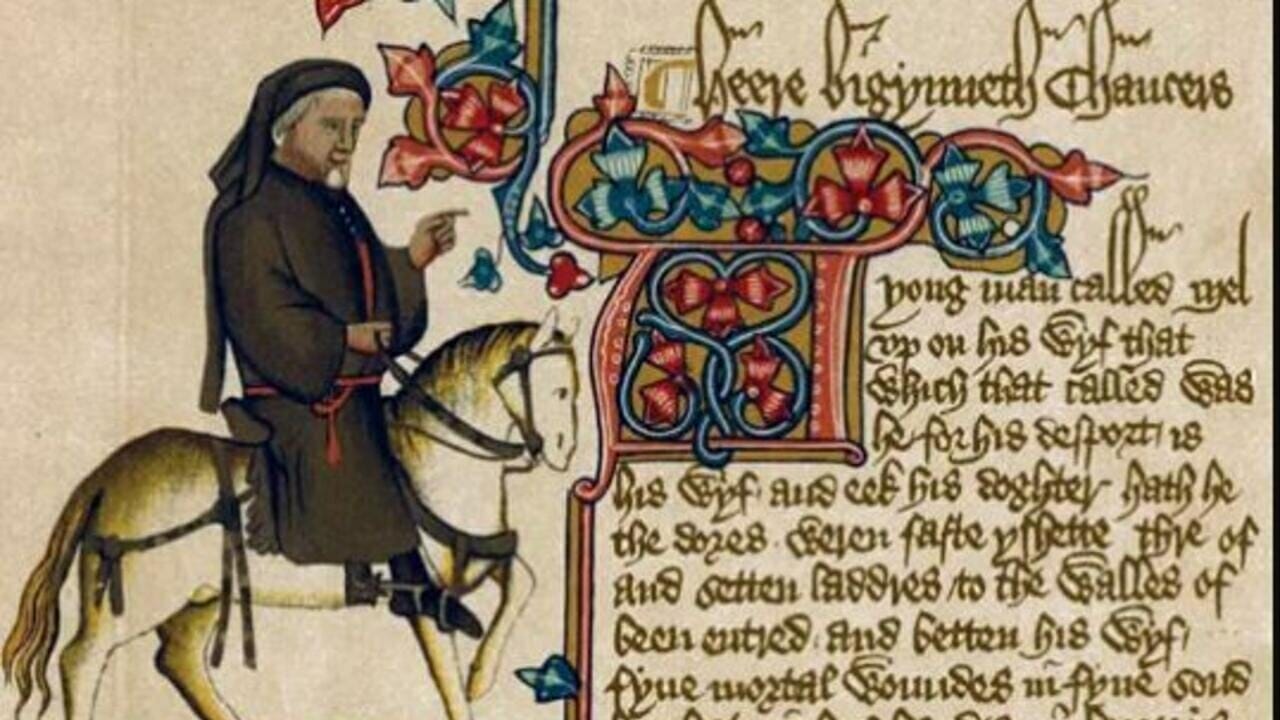 Heere bigynneth Chaucers
yong man called Mel
vp on his wyf that
which that called was
he for his desport is
his wyf and eek his doghter hath he
the dores weren faste yshette thre of
and setten laddres to the walles of
been entred and betten his wyf
fyue mortal woundes in fyue sond